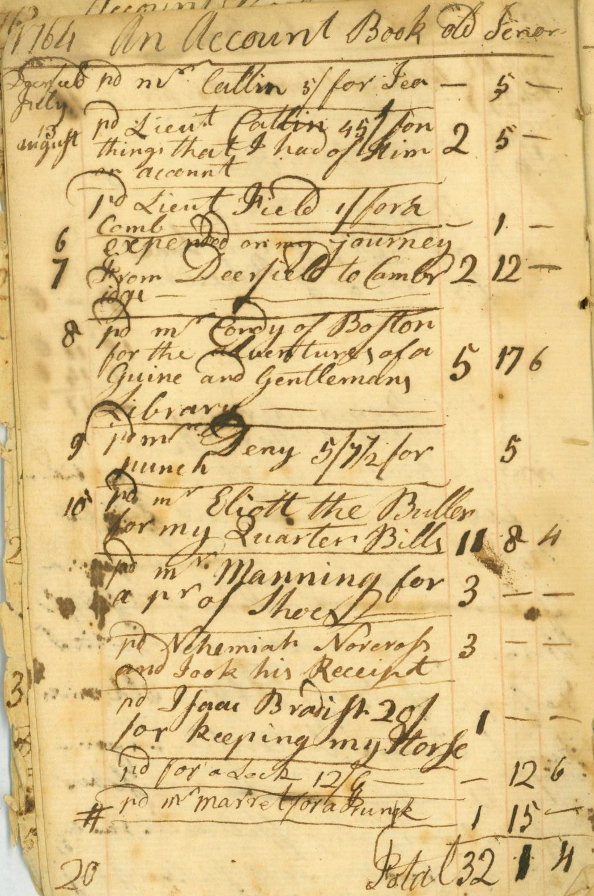 1764 An Account Book old Tenor
Deerfield pd mr Catlin 5/ for Tea — 5 —
July
13 pd Lieut Catlin 45/ for
august things that I had of Him 2 5 —
on account
pd Lieut Field 1/ for a
Comb — 1 —
6 expended on my journey
7 From Deerfield to Cambr 2 12 —
idge
8 pd mr Condy of Boston
for the Adventures of a
Guine and Gentlemans 5 17 6
Library
9 pd mr Deny 5/7/2 for 5
punch
10 pd mr Eliott the Butler
for my Quarter Bills 11 8 4
pd mr Manning for
a pr of Shoes 3 — —
pd Nehemiah Norcross 3 — —
and Took his Receipt
pd Isaac Bradish 20/
for keeping my Horse 1 — —
pd for a Lock 12/6 — 12 6
# pd mr Marret for a Trunk 1 15 —
20 Total 32 1 4